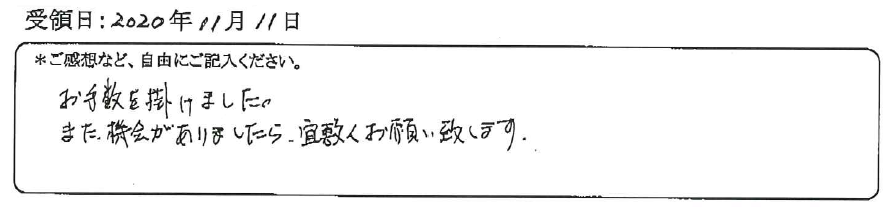 受領日：2020年11月11日
＊ご感想など、自由にご記入ください。
お手数を掛けました。
また、機会がありましたら、宜敷くお願い致します。